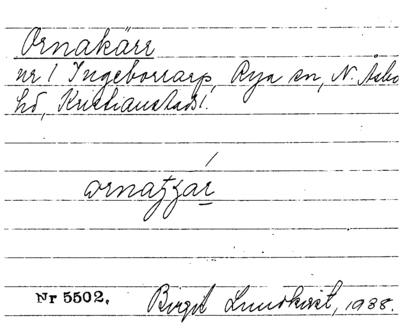 Ornakärr
nr 1 Ingeborrarp, Rya sn, N. Åsbo
hd, Kristianstads l.
Nr 5502. Birgit Lundkvist, 1938.